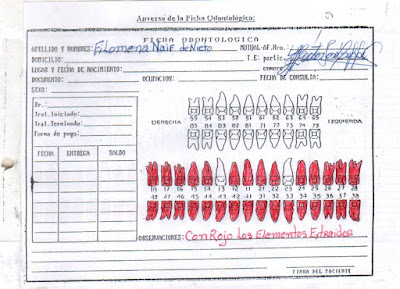 Anverso de la Ficha Odontológica:
FICHA ODONTOLOGICA
APELLIDO Y NOMBRES: Filomena Naif de Nieto MUTUAL-AF.Nro.:
DOMICILIO: T.E: partic.
LUGAR Y FECHA DE NACIMIENTO:
DOCUMENTO: OCUPACION: FECHA DE CONSULTA:
SEXO:
Dr.:
Trat.Iniciado:
Trat.Terminado:
Forma de pago:
FECHA ENTREGA SALDO
DERECHA IZQUIERDA
55 54 53 52 51 61 62 63 64 65
85 84 83 82 81 71 72 73 74 75
18 17 16 15 14 13 12 11 21 22 23 24 25 26 27 28
48 47 46 45 44 43 42 41 31 32 33 34 35 36 37 38
OBSERVACIONES: Con Rojo Los Elementos Extraidos
FIRMA DEL PACIENTE